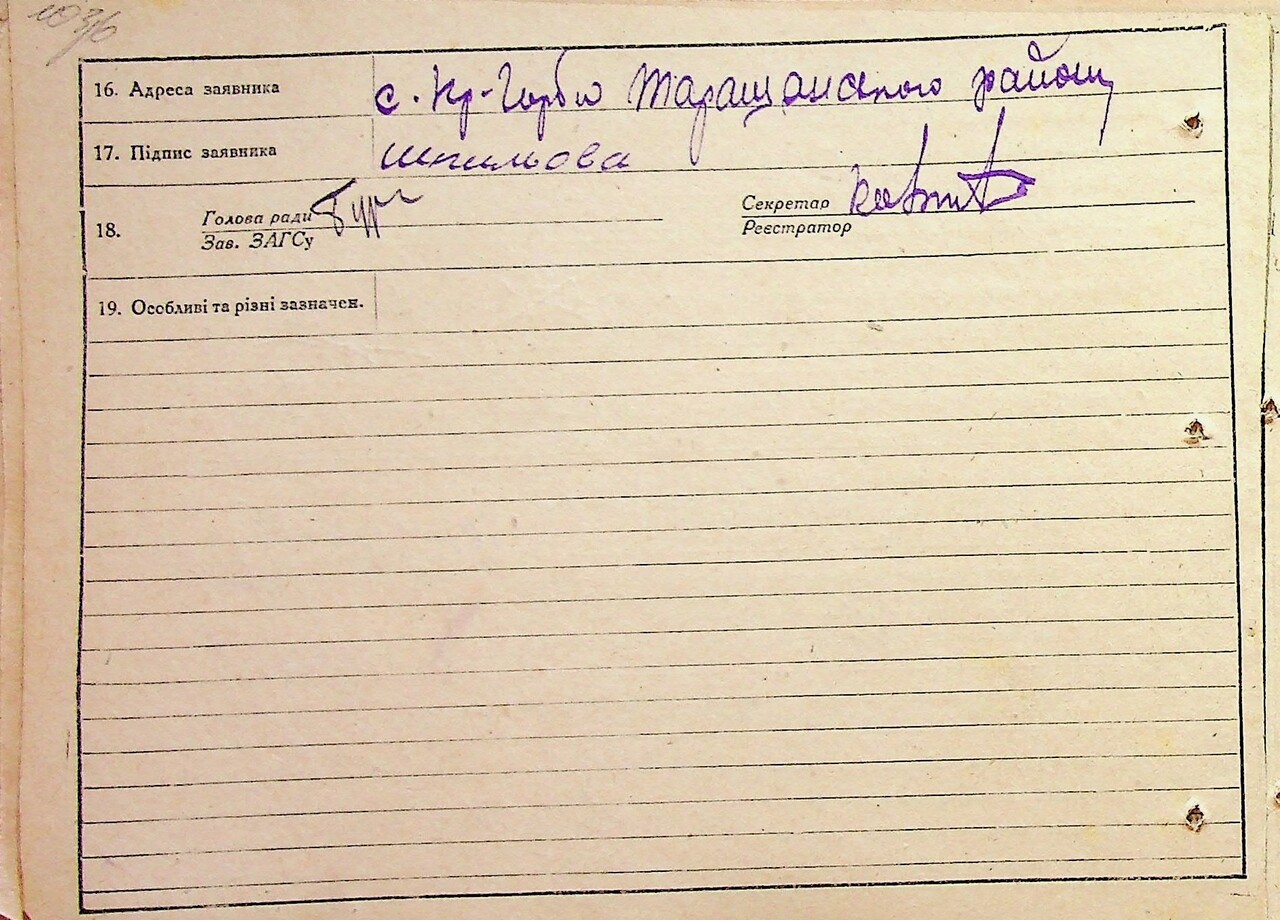 16. Адреса заявника с. Кр-Горби Таращанского району
17. Підпис заявника Шпильова
18. Голова ради Секретар
Зав. ЗАГСу Реєстратор
19. Особливі та різні зазначен.